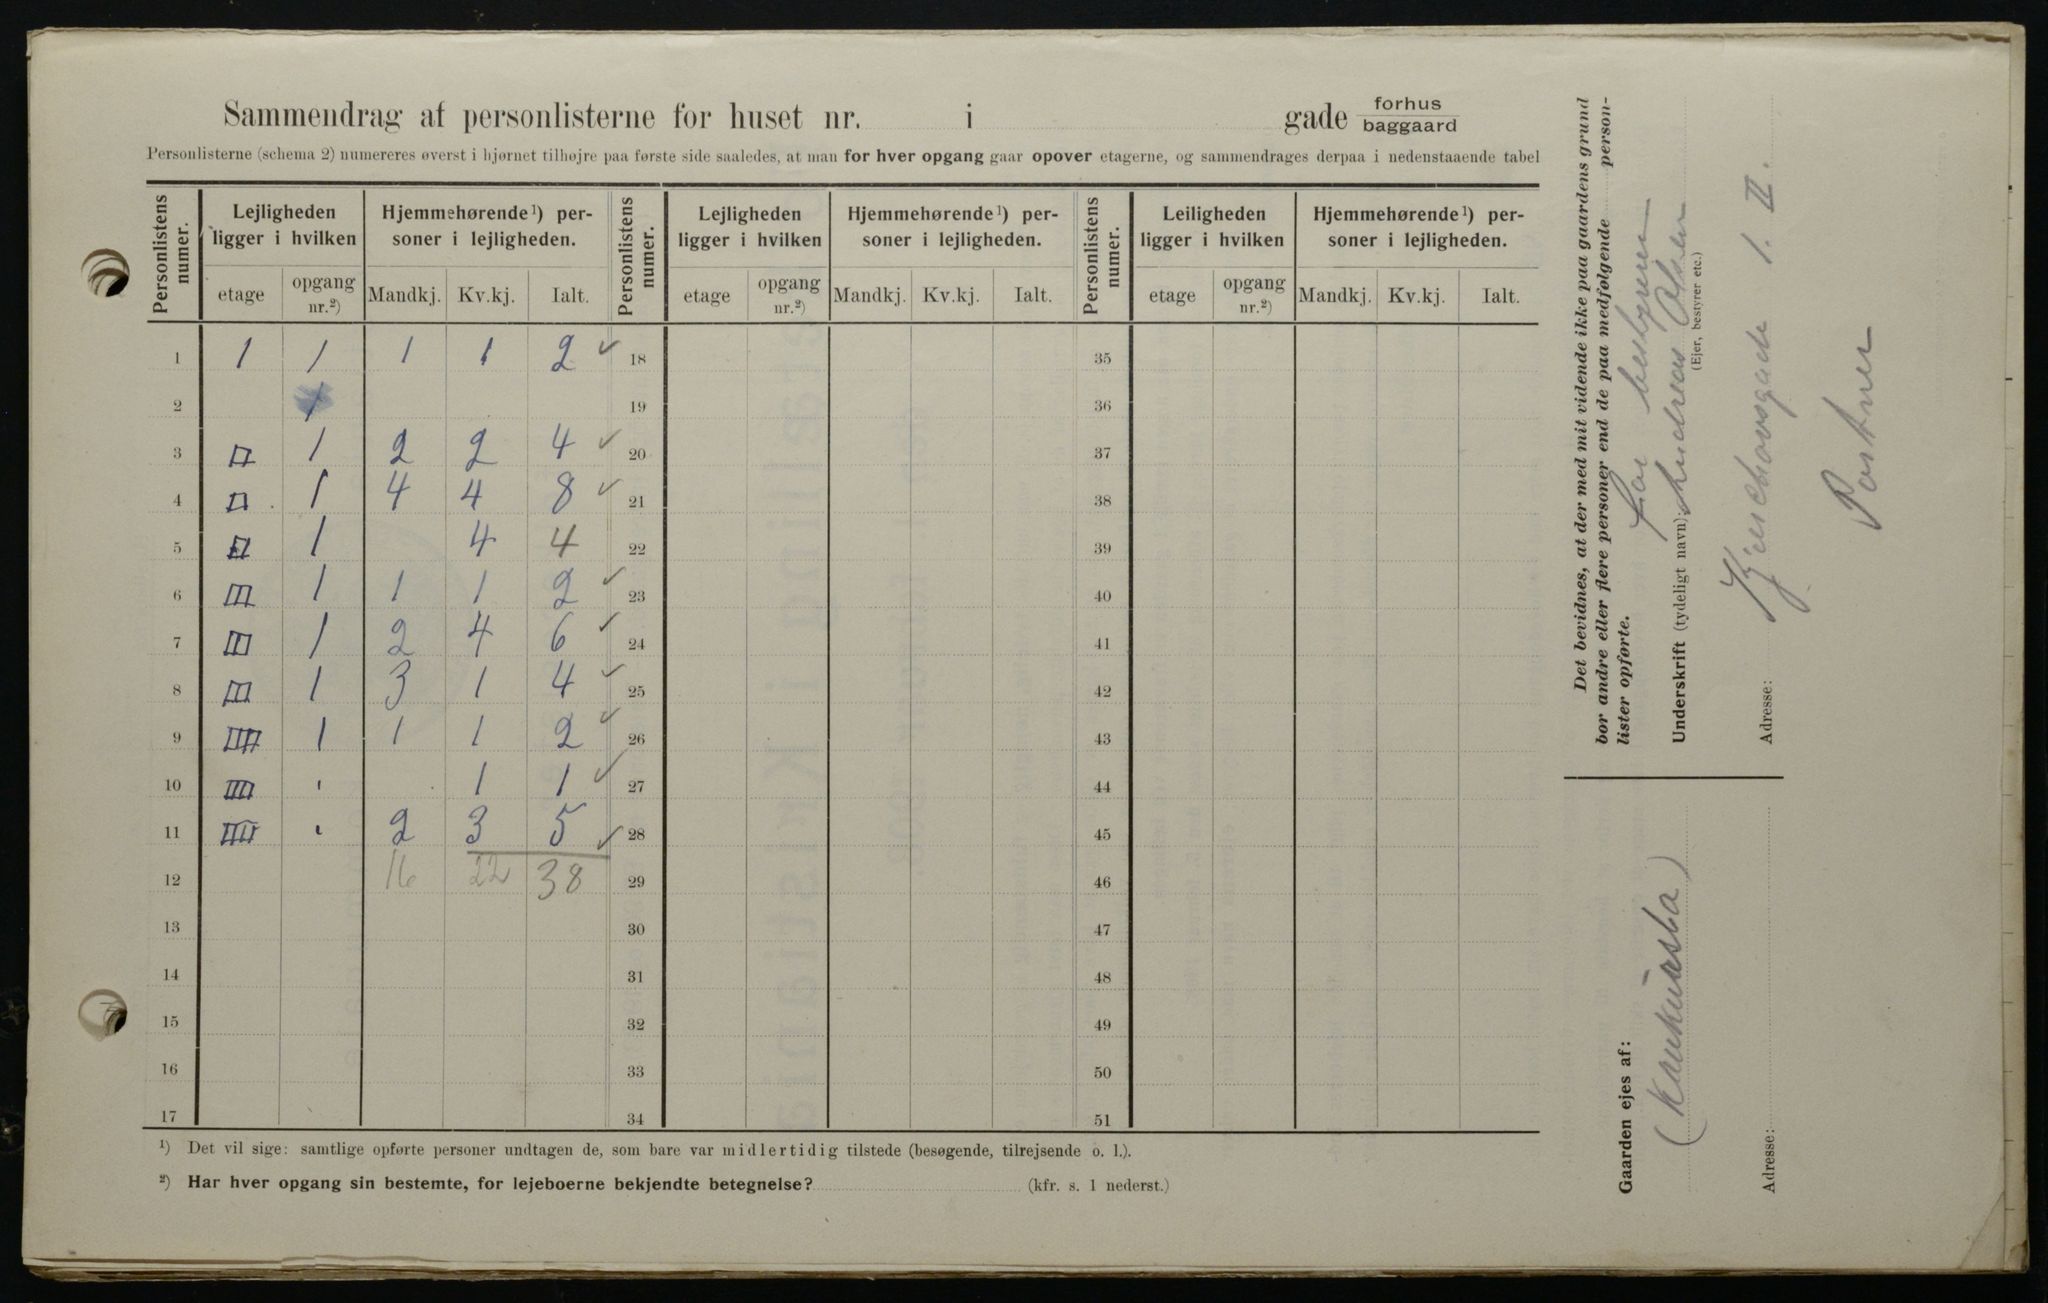 Sammendrag af personlisterne for huset nr. i gade forhus baggaard
Personlisterne (schema 2) numereres øverst i hjørnet tilhøjre paa første side saaledes, at man for hver opgang gaar opover etagerne, og sammendrages derpaa i nedenstaaende tabel
Personlistens numer. Lejligheden ligger i hvilken Hjemmehørende¹) personer i lejligheden. Personlistens numer. Lejligheden ligger i hvilken Hjemmehørende¹) personer i lejligheden. Personlistens numer. Leiligheden ligger i hvilken Hjemmehørende¹) personer i lejligheden.
etage opgang nr.²) Mandkj. Kv.kj. Ialt. etage opgang nr.²) Mandkj. Kv.kj. Ialt. etage opgang nr.²) Mandkj. Kv.kj. Ialt.
1 I 1 1 1 2 ✓ 18 35
2 19 36
3 II 1 2 2 4 ✓ 20 37
4 II 1 4 4 8 ✓ 21 38
5 II 1 4 4 22 39
6 III 1 1 1 2 ✓ 23 40
7 III 1 2 4 6 ✓ 24 41
8 III 1 3 1 4 ✓ 25 42
9 IIII 1 1 1 2 ✓ 26 43
10 IIII " 1 1 ✓ 27 44
11 IIII " 2 3 5 ✓ 28 45
12 16 22 38 29 46
13 30 47
14 31 48
15 32 49
16 33 50
17 34 51
¹) Det vil sige: samtlige opførte personer undtagen de, som bare var midlertidig tilstede (besøgende, tilrejsende o. l.).
²) Har hver opgang sin bestemte, for lejeboerne bekjendte betegnelse? (kfr. s. 1 nederst.)
Det bevidnes, at der med mit vidende ikke paa gaardens grund
bor andre eller flere personer end de paa medfølgende person-
lister opførte. for bestyreren
Underskrift (tydeligt navn): Andreas Olsen
(Ejer, bestyrer etc.)
Adresse: 1. II.
Portner
Gaarden ejes af:
Adresse: